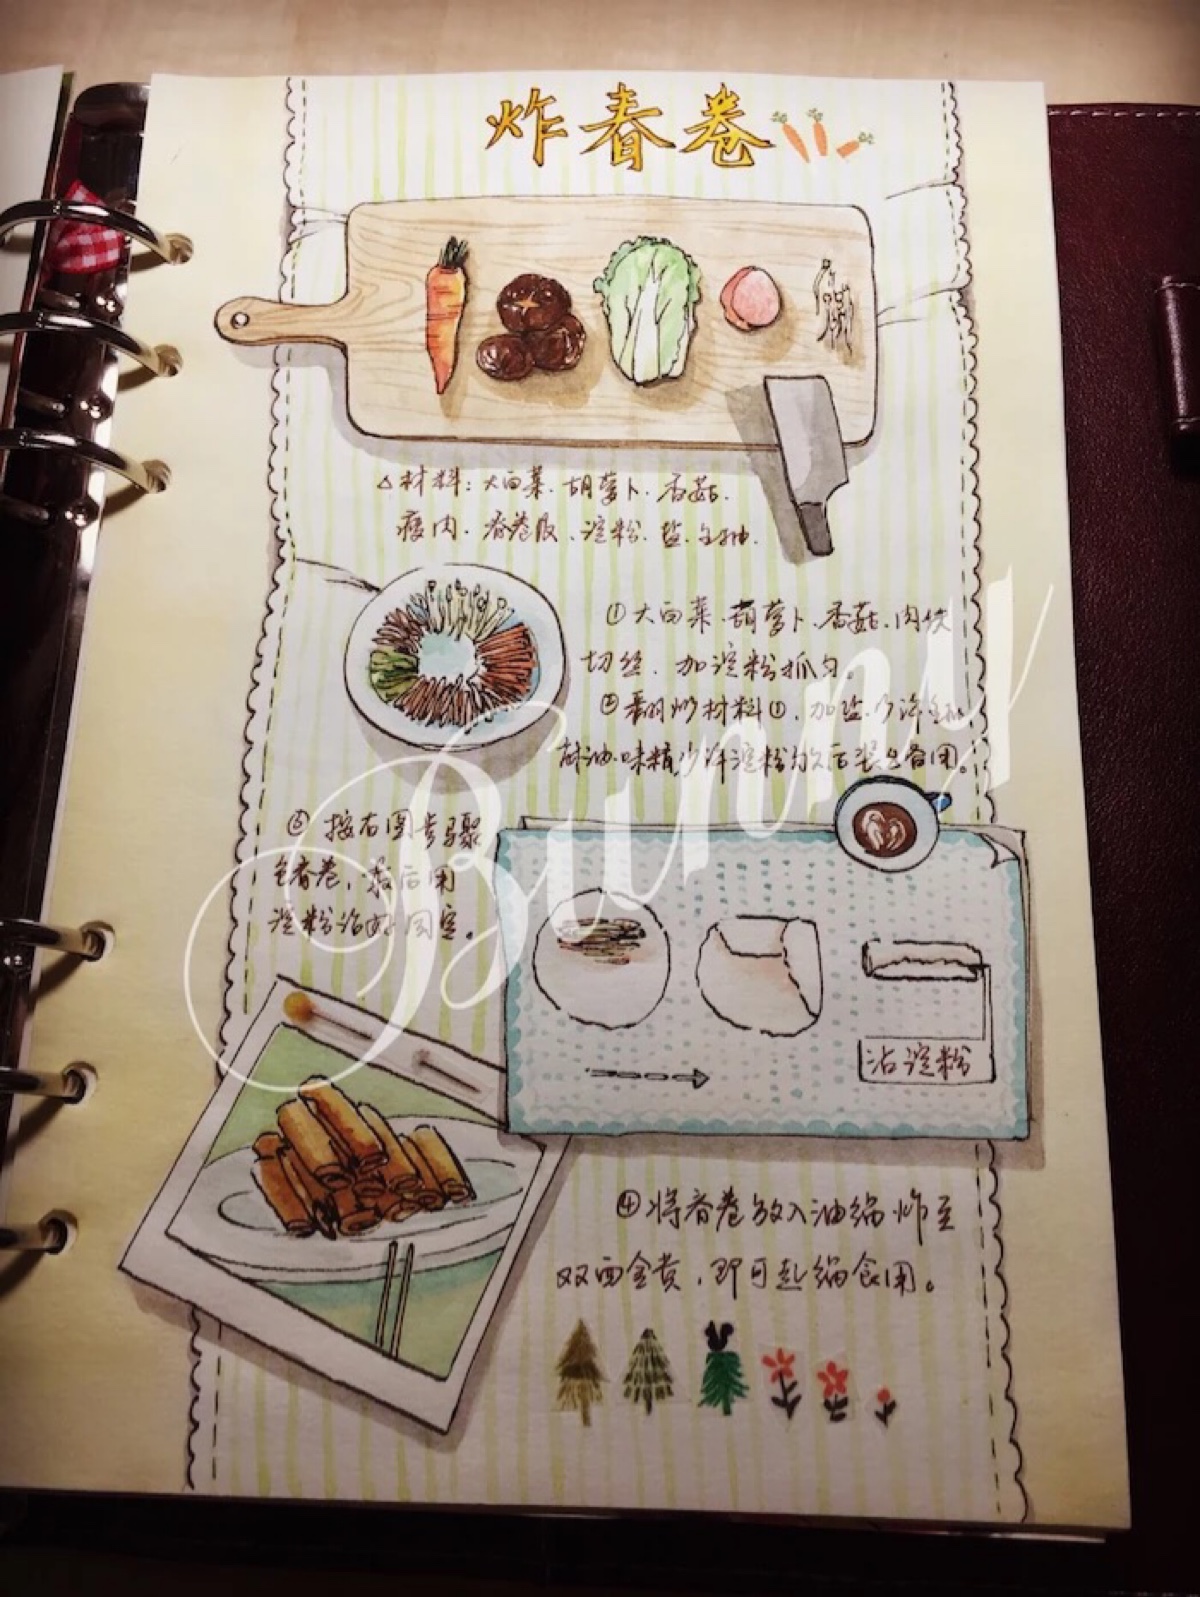 炸春卷
△材料：大白菜.胡萝卜.香菇.
瘦肉.春卷皮.淀粉.盐.生抽.
①大白菜.胡萝卜.香菇.肉丝
切丝.加淀粉抓匀。
②翻炒材料①,加盐.少许生抽
耗油.味精少许淀粉水后装出备用。
③按右图步骤
包春卷,最后用
淀粉沾好固定。
沾淀粉
④将春卷放入油锅炸至
双面金黄,即可起锅食用。
Bunny